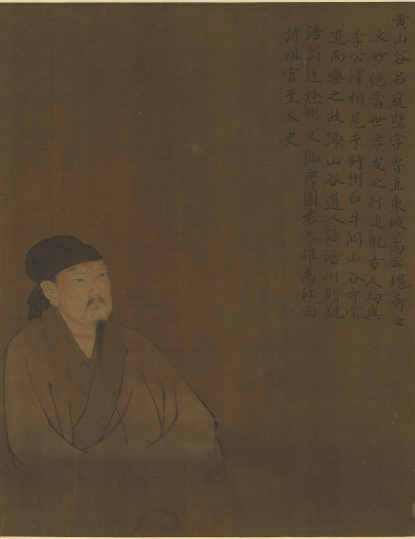 黄山谷名庭堅字魯直東坡薦云瑰奇之
文妙絶當世孝友之行追配古人初與
李公擇相見于舒州白牛洞山谷寺常
遊而樂之故號山谷道人謫涪州別號
涪翁述黔州又號摩圍老人推為江西
詩祖官至太史